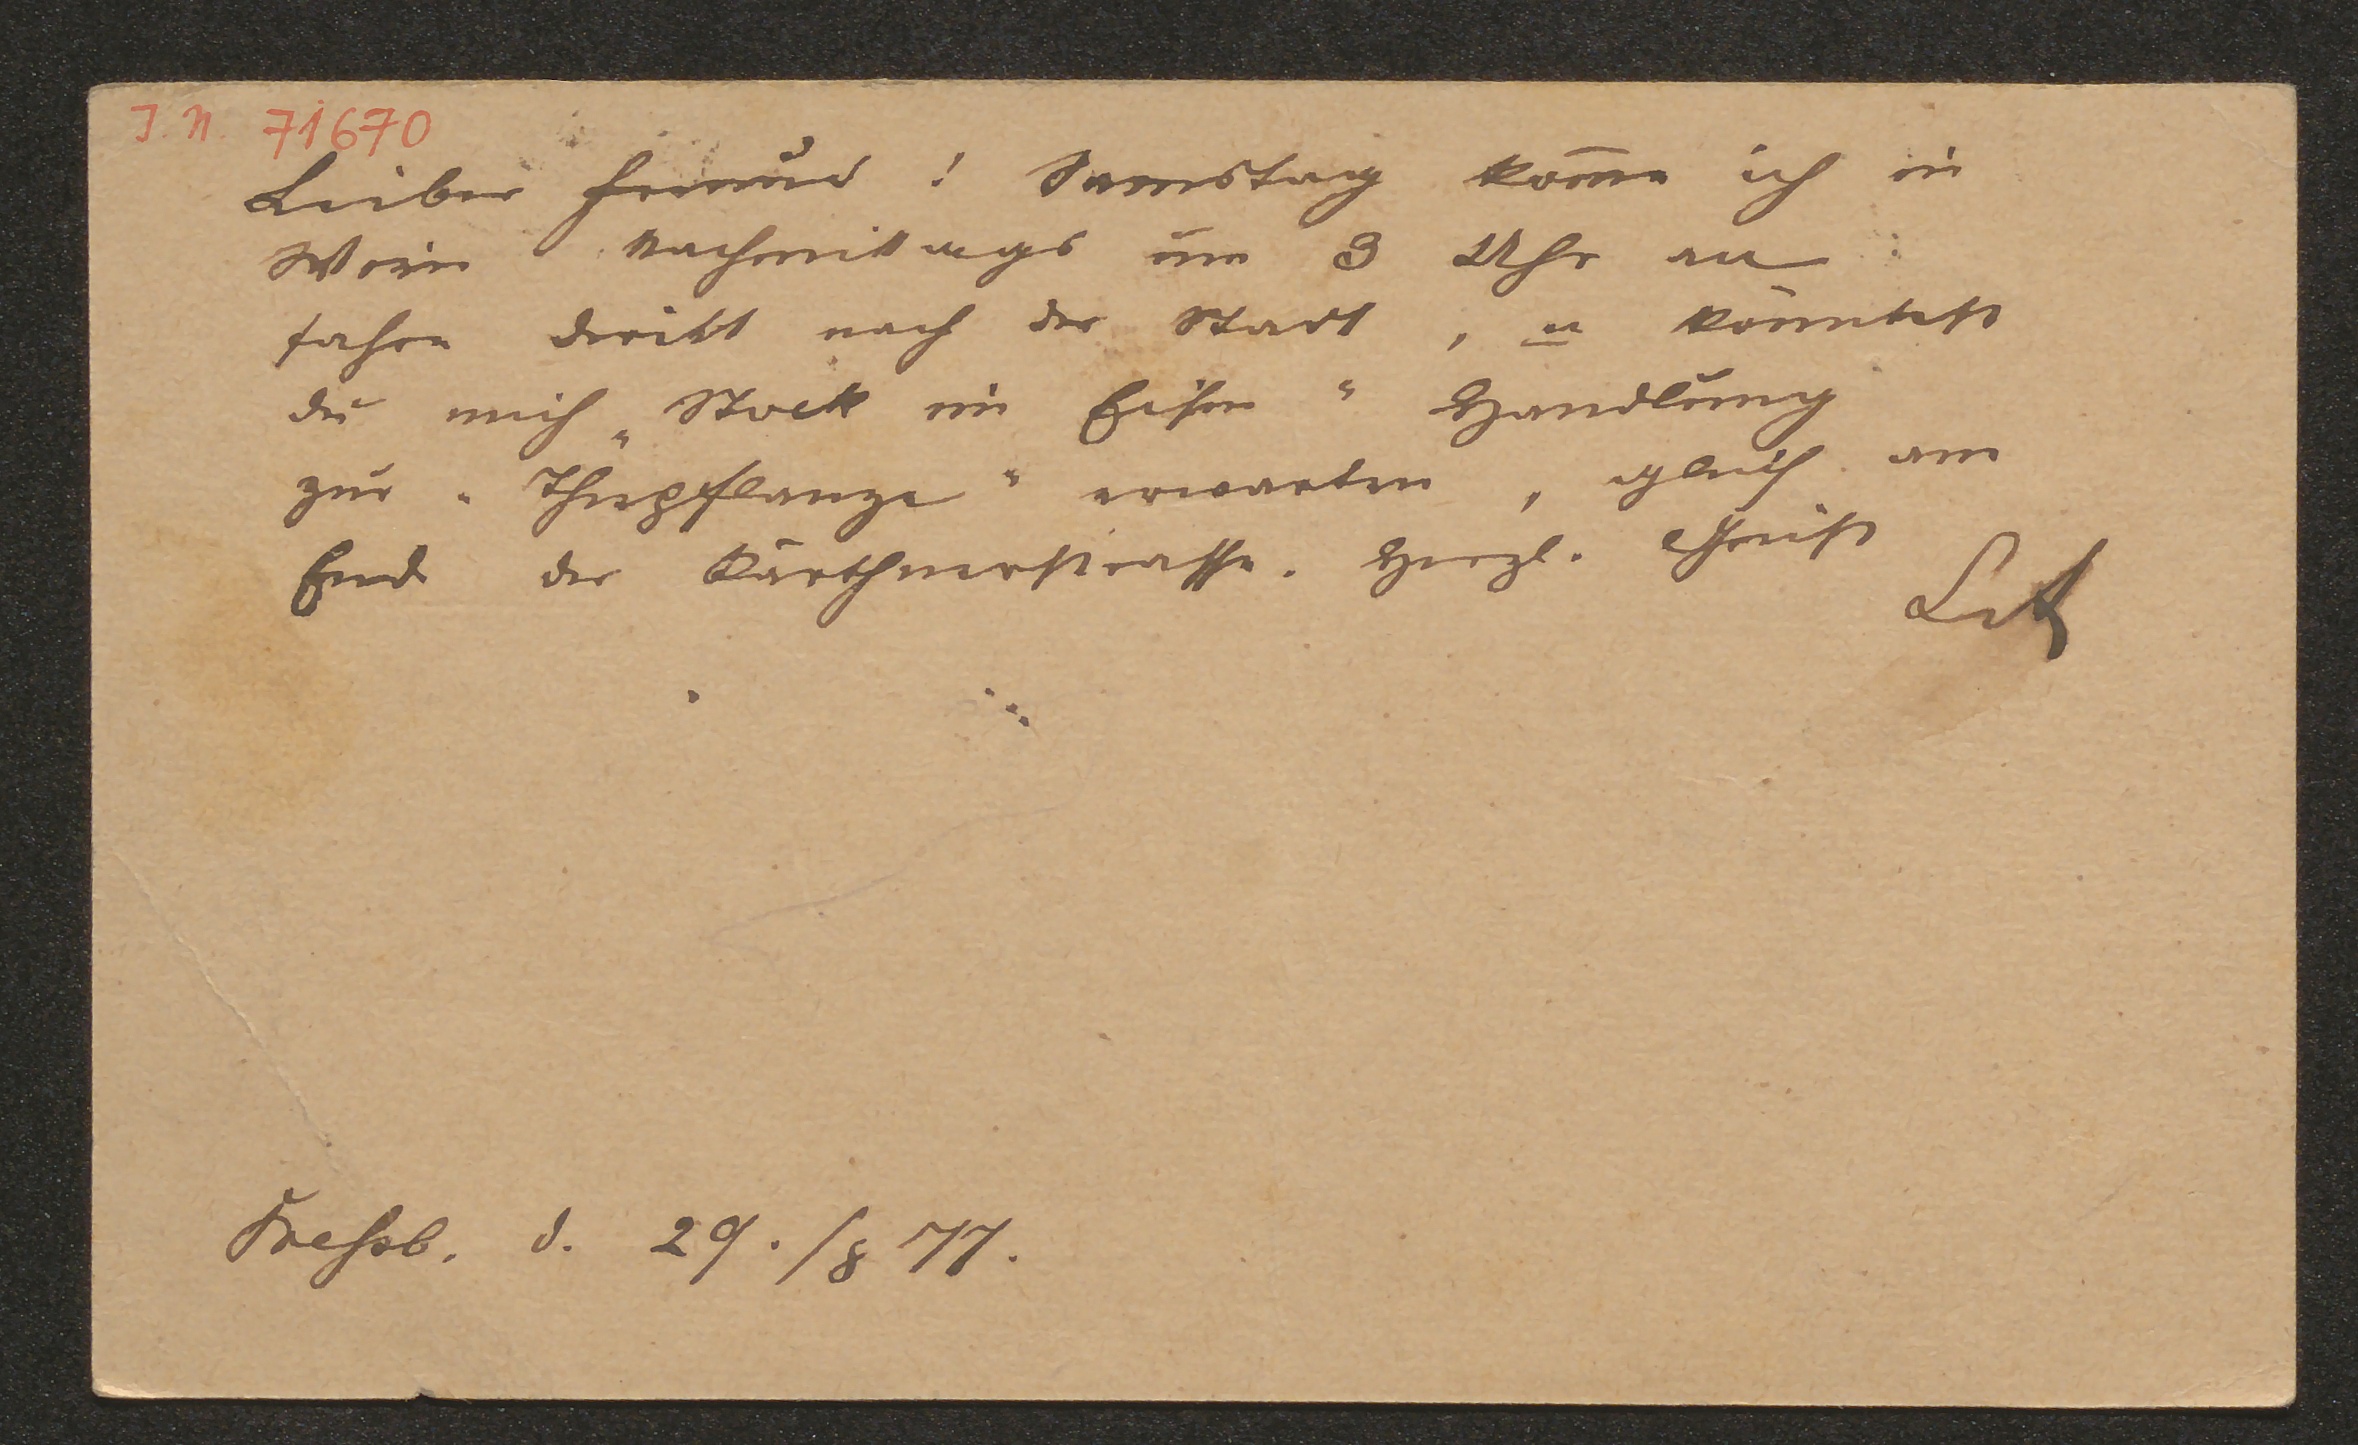 I. N. 71670
Lieber Freund! Samstag kom̅e ich in
Wien Nachmittags um 3 Uhr an
fahre direkt nach der Stadt, u könntest
du mich „Stock im Eisen" Handlung
zur „Theepflanze" erwarten, gleich am
Ende der Kärthnerstrasse. Herzl. Gruß
Pressb. d. 29./8 77.